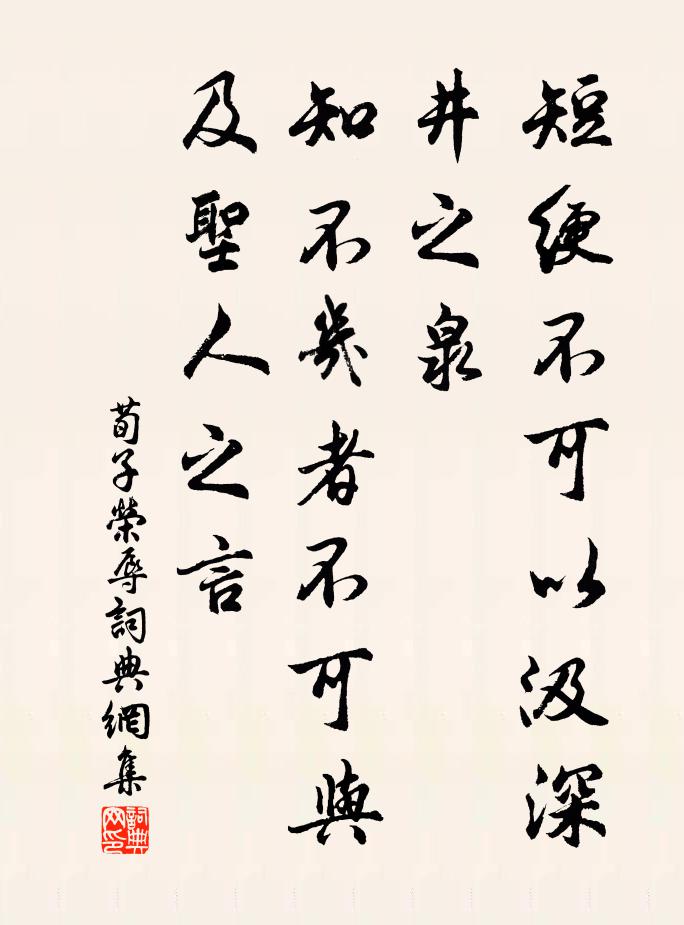 短綆不可以汲深
井之泉
知不幾者不可與
及聖人之言
荀子榮辱詞典網集
詞典
网印